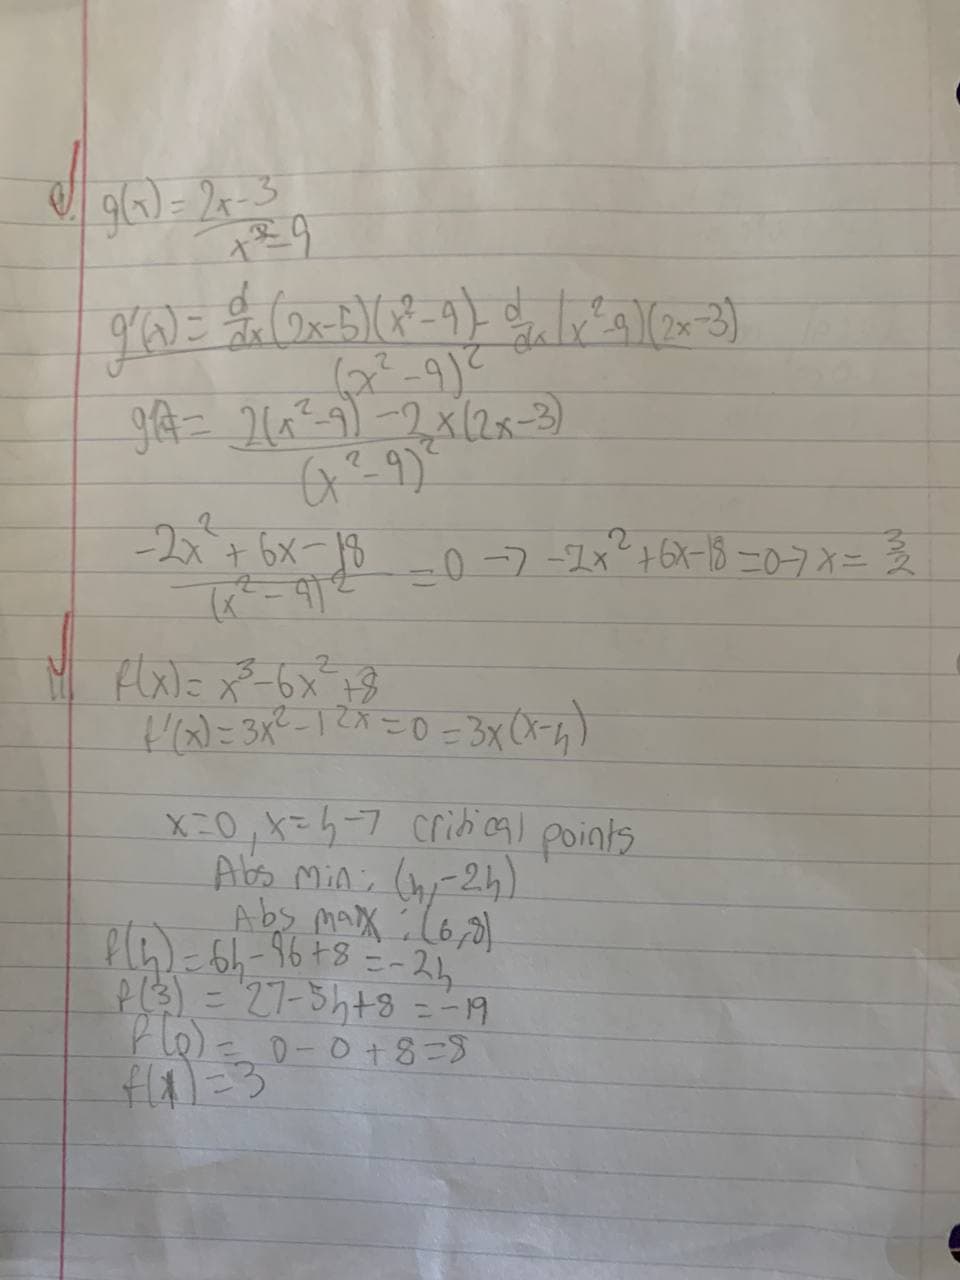 e. g(x) = 2x-3 / x²-9
g'(x) = d/dx (2x-5)(x²-9) - d/dx (x²-9)(2x-3) / (x²-9)²
= 2(x²-9) - 2x(2x-3) / (x²-9)²
-2x² + 6x - 18 / (x²-9)² = 0 → -2x² + 6x - 18 = 0 → x = 3/2
f(x) = x³ - 6x² + 8
f'(x) = 3x² - 12x = 0 = 3x(x-4)
x=0, x=4 → critical points
Abs min: (4, -24)
Abs max: (6, 8)
f(4) = 64 - 96 + 8 = -24
f(3) = 27 - 54 + 8 = -19
f(0) = 0 - 0 + 8 = 8
f(1) = 3